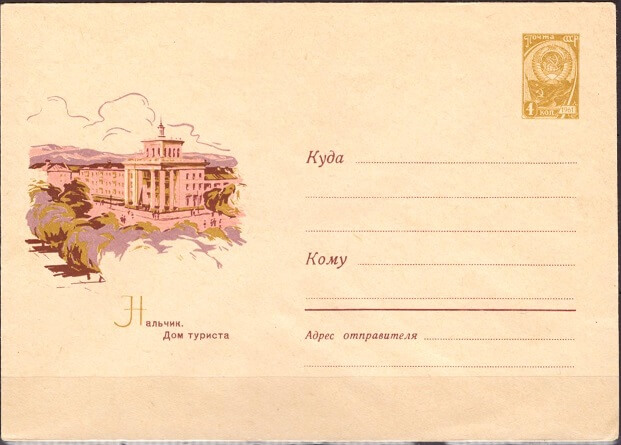 Почта СССР
4 коп. 1961
Куда
Кому
Нальчик.
Дом туриста
Адрес отправителя